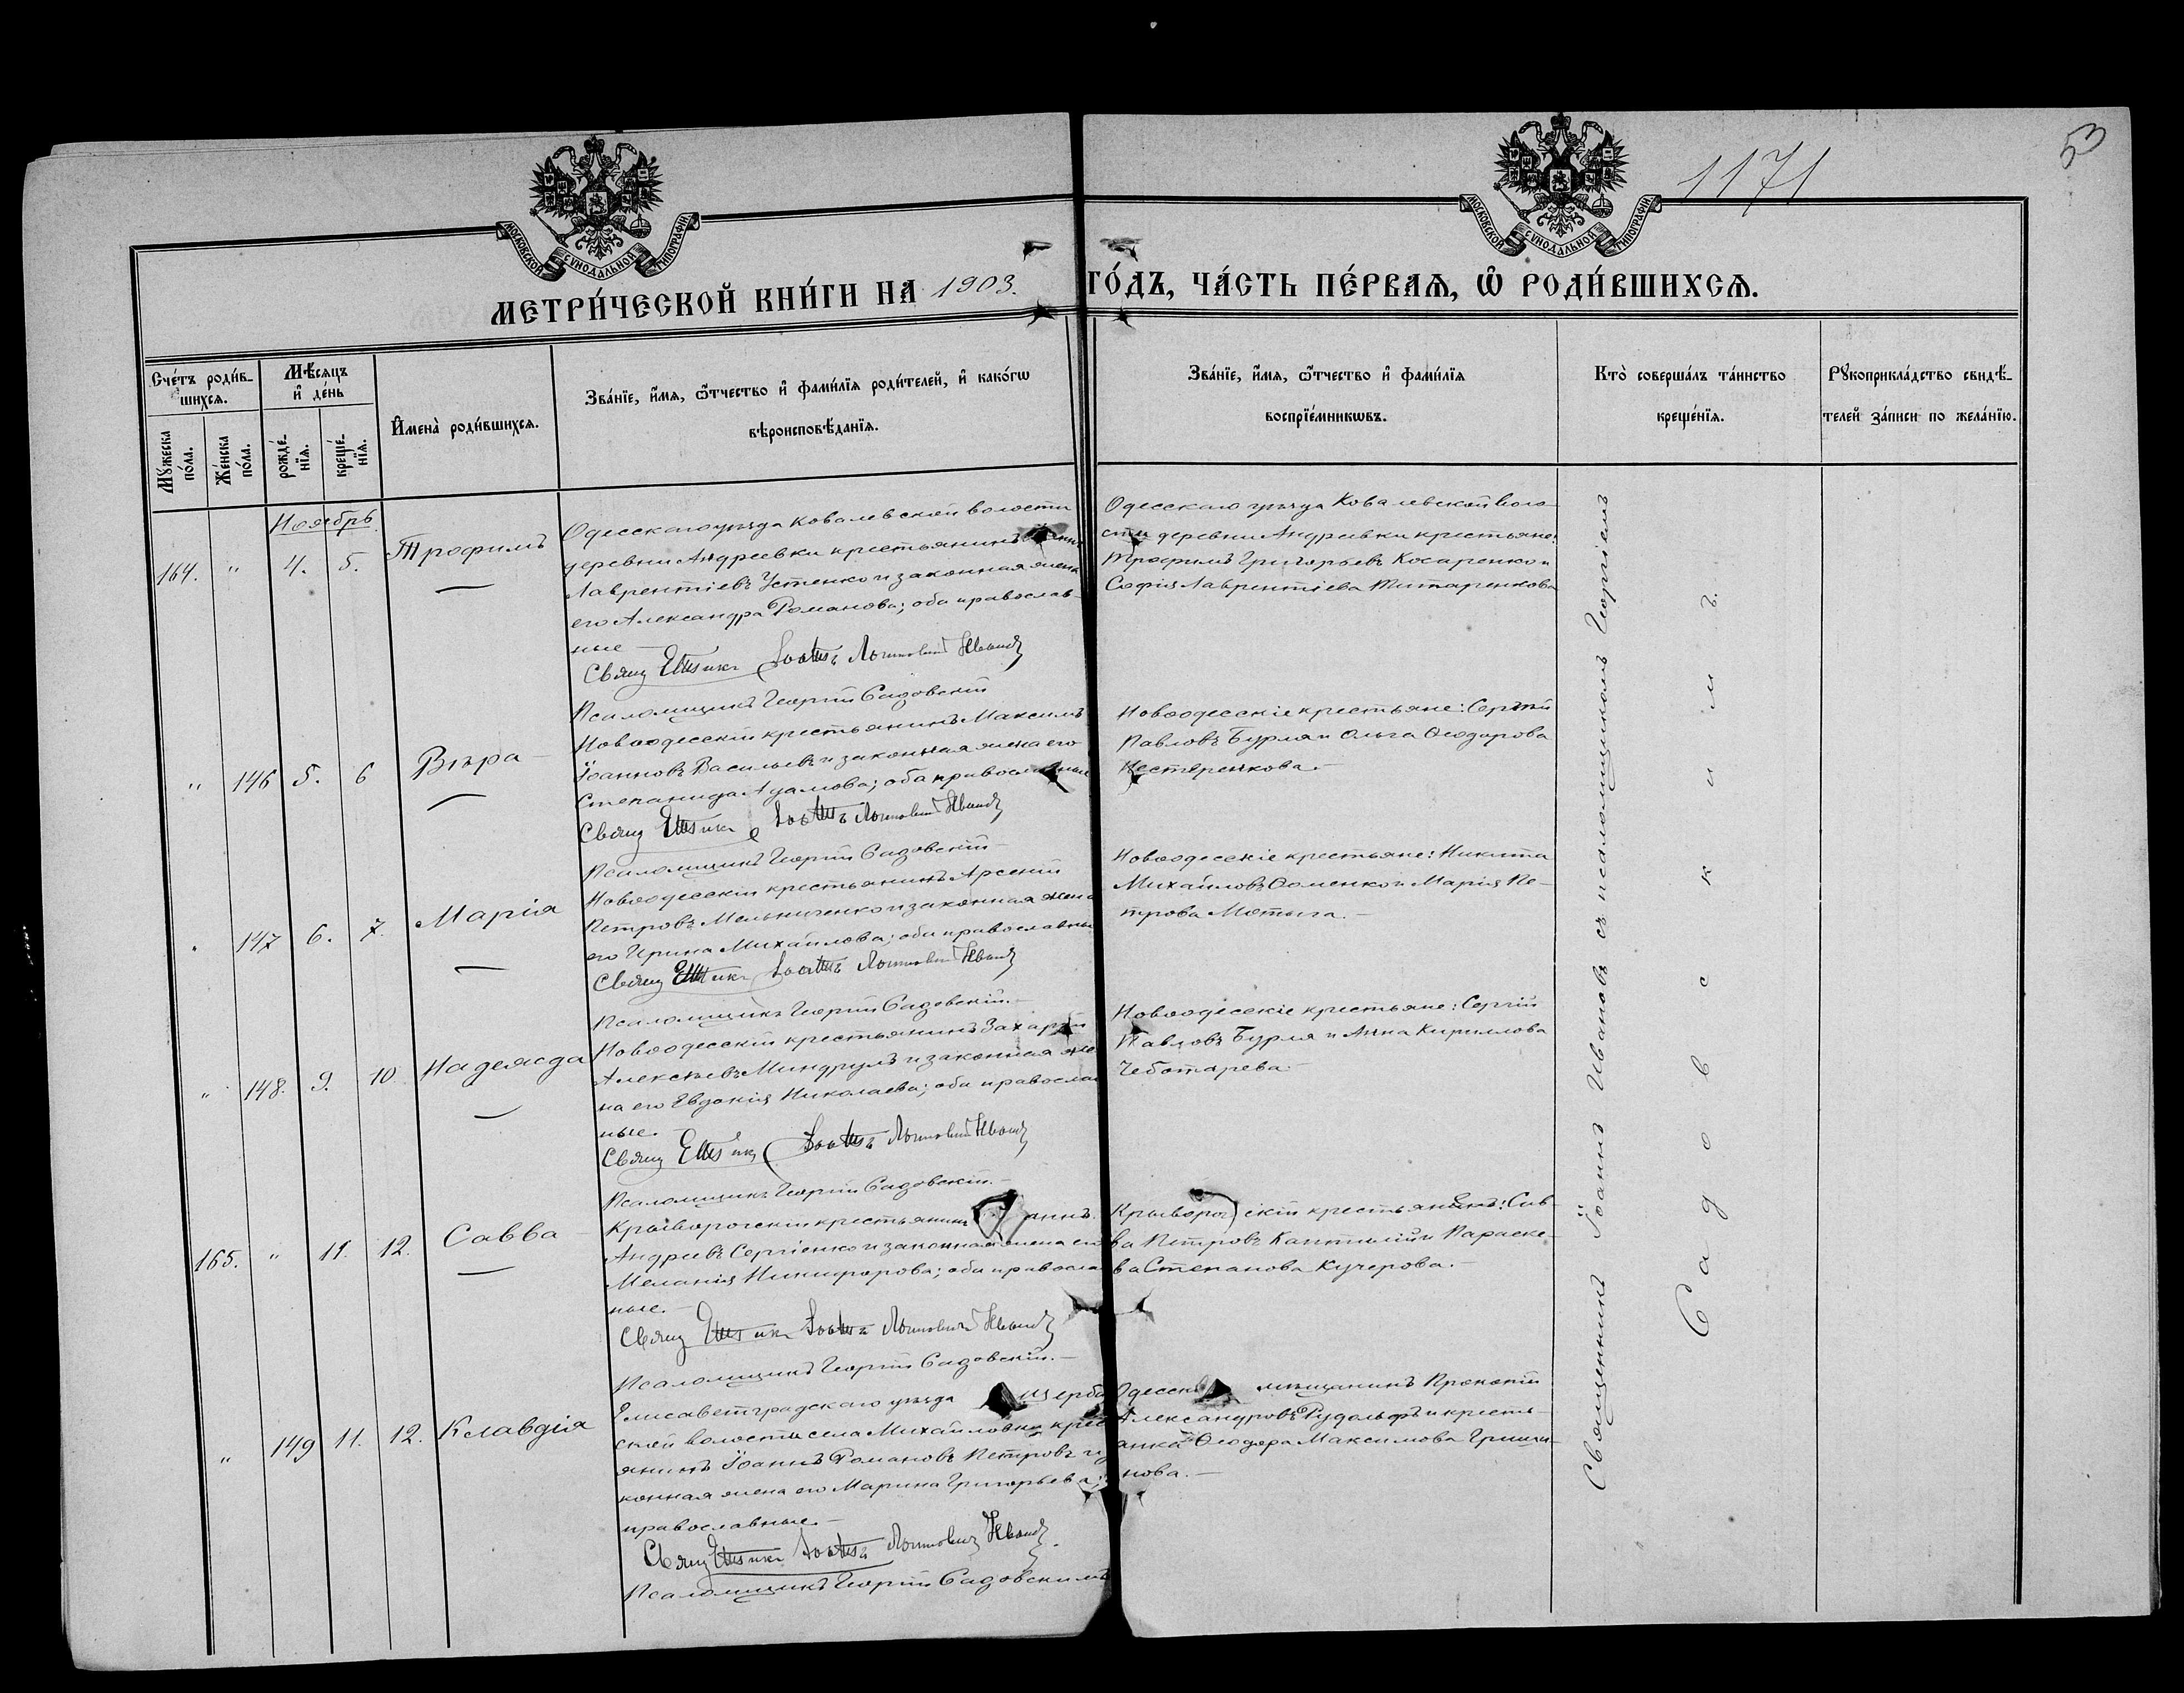 53
1171
МОСКОВСКОЙ СѴНОДАЛЬНОЙ ТИПОГРАФІИ
МОСКОВСКОЙ СѴНОДАЛЬНОЙ ТИПОГРАФІИ
МЕТРИ́ЧЕСКОЙ КНИ́ГИ НА 1903. ГО́ДЪ, ЧА́СТЬ ПЕ́РВАѦ, Ѡ РОДИ́ВШИХСѦ.
Сче́тъ роди́в-
шихсѧ.
Мꙋжеска по́ла.
Же́нска по́ла.
Мѣ́сѧцъ и҆ де́нь
рожде́-
нїѧ.
креще́-
нїѧ.
И҆мена̀ роди́вшихсѧ.
Зва́нїе, и҆́мѧ, ѻ҆́тчество и҆ фами́лїѧ роди́телей, и҆ како́гѡ
вѣроисповѣ́данїѧ.
Зва́нїе, и҆́мѧ, ѻ҆́тчество и҆ фами́лїѧ
воспрїе́мникѡвъ.
Кто̀ соверша́лъ та́инство
креще́нїѧ.
Рꙋкоприкла́дство свидѣ́-
телей за́писи по жела́нїю.
Ноябрь
164. " 4. 5. Трофимъ
Одесскаго уѣзда Ковалевской волости
деревни Андреевки крестьянинъ
Лаврентіевъ Устенко и законная жена
его Александра Романова; оба православ-
ные
Свящ Іоаннъ Иванов
Псаломщикъ Георгій Садовскій
Одесскаго уѣзда Ковалевской воло-
сти деревни Андреевки крестьяне:
Трофимъ Григорьевъ Косаренко и
Софія Лаврентіева Титаренкова
" 146 5. 6 Вѣра
Новоодесскій крестьянинъ Максимъ
Іоанновъ Васильевъ и законная жена его
Степанида Адамова; оба православные
Свящ Іоаннъ Иванов
Псаломщикъ Георгій Садовскій
Новоодесскіе крестьяне: Сергій
Павловъ Бурля и Ольга Ѳеодорова
Нестеренкова.
" 147 6. 7. Марія
Новоодесскій крестьянинъ Арсеній
Петровъ Мельниченко и законная жена
его Ирина Михайлова; оба православные
Свящ Іоаннъ Иванов
Псаломщикъ Георгій Садовскій.
Новоодесскіе крестьяне: Никита
Михайловъ Ѳоменко и Марія Пе-
трова Мотыга.
" 148. 9. 10 Надежда
Новоодесскій крестьянинъ Захарій
Алексѣевъ Миндрулъ и законная же
на его Евдокія Николаева; оба православ
ные.
Свящ Іоаннъ Иванов
Псаломщикъ Георгій Садовскій.
Новоодесскіе крестьяне: Сергій
Павловъ Бурля и Анна Кириллова
Чеботарева.
165. " 11. 12. Савва
крестьянинъ
Андреевъ Сергіенко и законная жена его
Меланія Никифорова; оба правосла
ные.
Свящ Іоаннъ Иванов
Псаломщикъ Георгій Садовскій.
скій крестьянинъ: Сав-
ва Петровъ и Параске-
ва Степанова Кучерова.
" 149 11. 12. Клавдія
Елисаветградскаго уѣзда Щерба
ской волости села Михайловки крес
янинъ Іоаннъ Романовъ Петровъ и з
конная жена его Марина Григорьева;
православные.
Свящ Іоаннъ Иванов
Псаломщикъ Георгій Садовскимъ
Одесск мѣщанинъ Прокопій
Александровъ Рудольфъ и кресть-
янка Ѳеодора Максимова Гриши-
нова.
Священникъ Іоаннъ Ивановъ съ псаломщикомъ Георгіемъ
Садовскимъ.